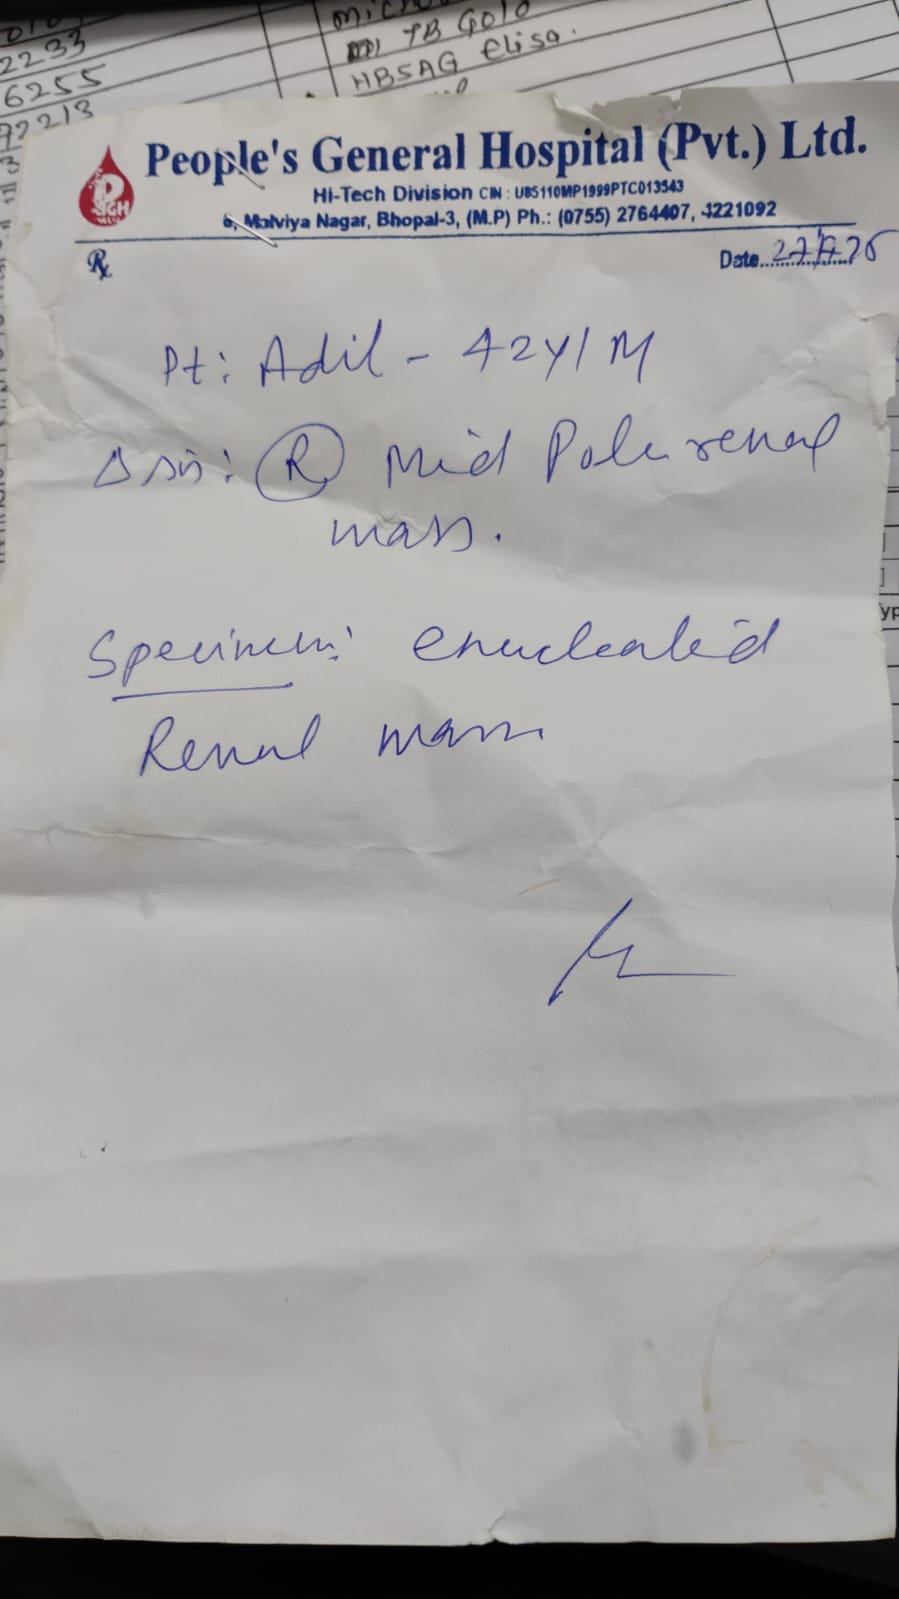 2233
6255
72213
TB Gold
HBSAG Elisa.
People's General Hospital (Pvt.) Ltd.
Hi-Tech Division CIN : U85110MP1999PTC013543
6, Malviya Nagar, Bhopal-3, (M.P) Ph.: (0755) 2764407, 4221092
Rx
Date..............
Pt: Adil - 42y/M
Δsis: Ⓡ Mid Pole renal
mass.
Specimen: enucleated
Renal mass